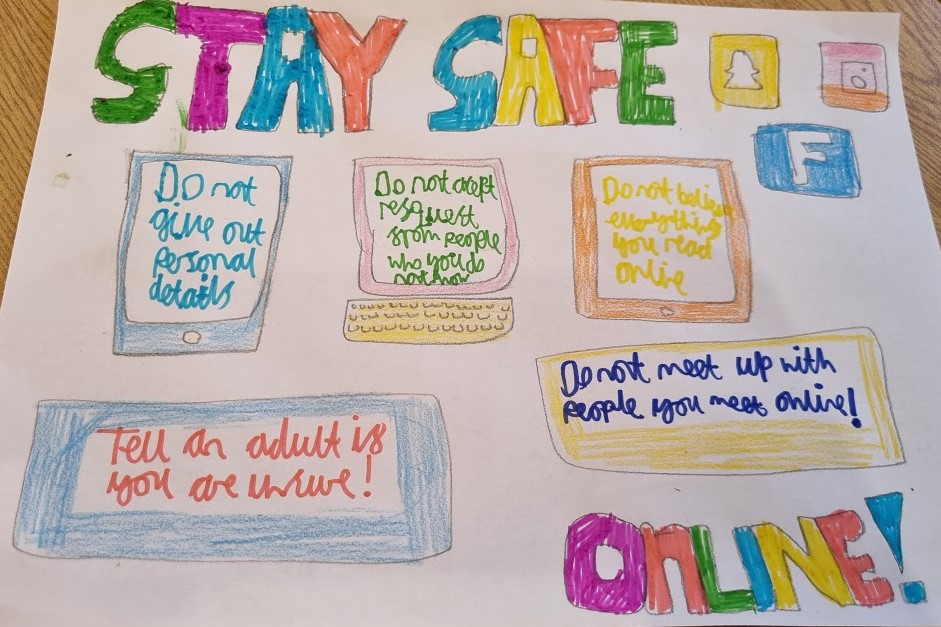 STAY SAFE
F
Do not
give out
personal
details
Do not acept
resquest
from people
who you do
not know
Do not believe
everything
you read
online
Do not meet up with
people you meet online!
Tell an adult if
you are unsure!
ONLINE!